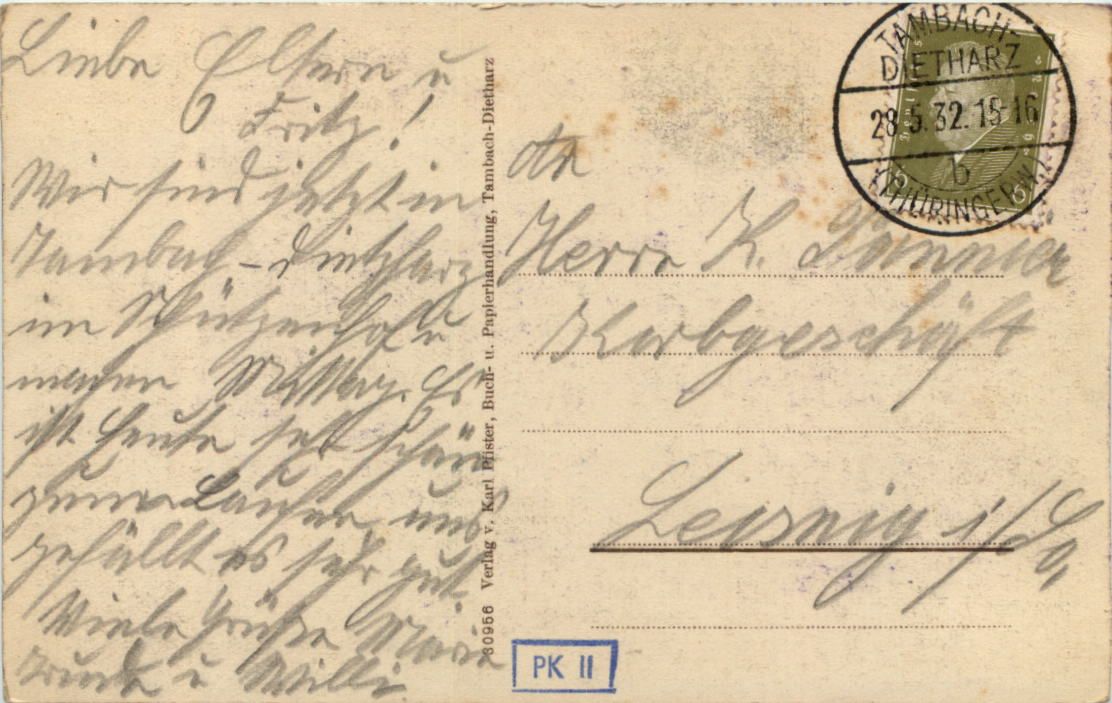 Liebe Eltern u
Fritz!
Wir sind jetzt in
Tambach-Dietharz
im Schützenhof u
machen Mittag. Es
ist heute sehr schön
zum Laufen, uns
gefällt es sehr gut.
Viele Grüße Marie
u Willi.
30956 Verlag v. Karl Pfister, Buch- u. Papierhandlung, Tambach-Dietharz
TAMBACH-
DIETHARZ
28.5.32.15-16
b
(THÜRINGERW.)
An
Herrn K.
Korbgeschäft
Leisnig i/Sa
PK II